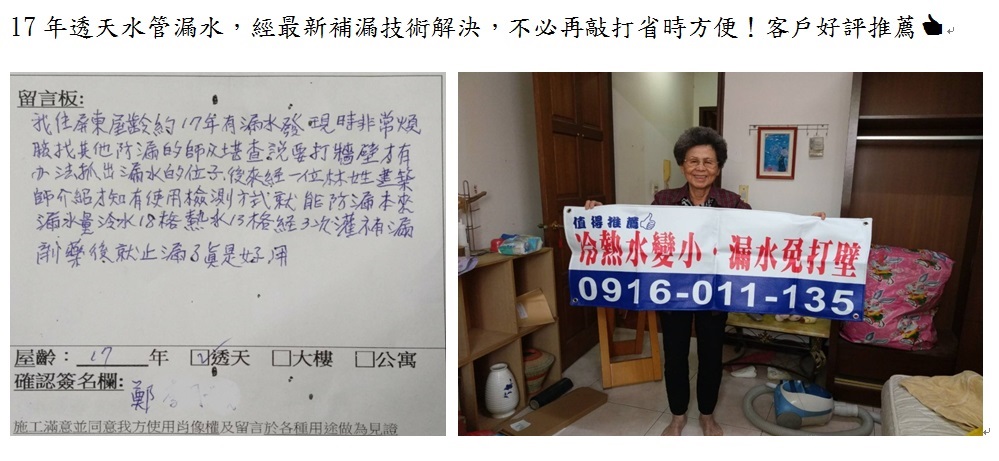 17 年透天水管漏水，經最新補漏技術解決，不必再敲打省時方便！客戶好評推薦
留言板:
我住屏東屋齡約17年有漏水發現時非常煩
腦找其他防漏的師父堪查說要打牆壁才有
办法抓出漏水的位子後來經一位林姓建築
師介紹才知有使用檢測方式就能防漏本來
漏水量冷水18格熱水13格經3次灌補漏
劑藥後就止漏了真是好用
屋齡：17 年 透天 大樓 公寓
確認簽名欄: 鄭
施工滿意並同意我方使用肖像權及留言於各種用途做為見證
值得推薦
冷熱水變小．漏水免打壁
0916-011-135